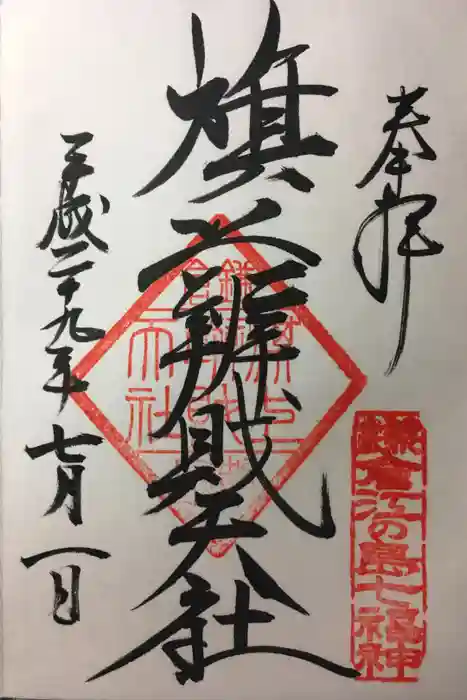 奉拝
鎌倉江の島七福神
旗上辨財天社
平成二十九年七月一日